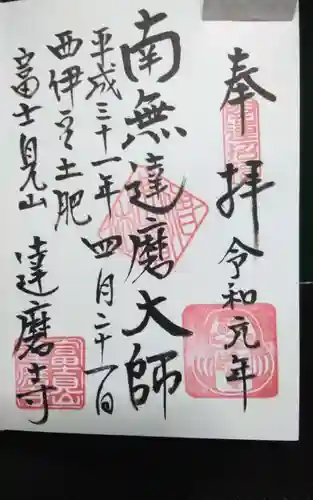 奉拝 令和元年
南無達磨大師
平成三十一年四月二十一日
西伊豆土肥
富士見山 達磨寺